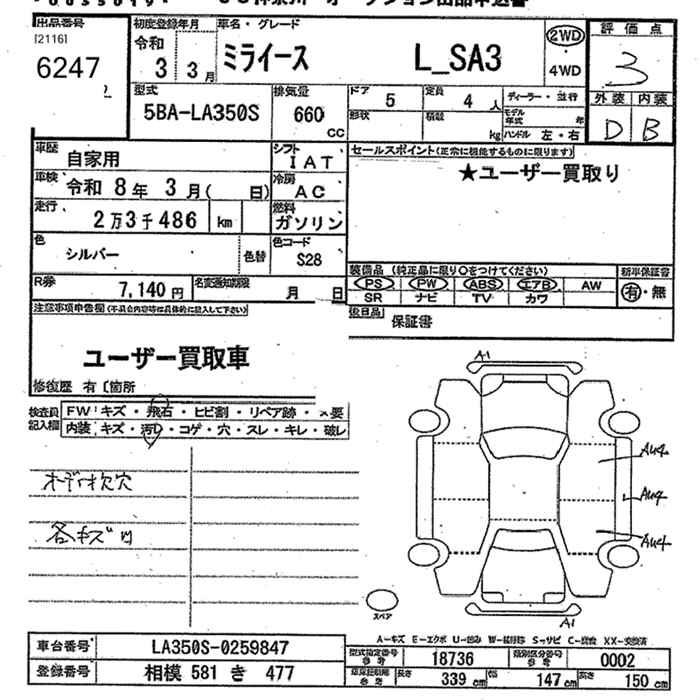 出品番号 初度登録年月 車名・グレード 評価点
[2116] 令和
6247 3 3月 ミライース L_SA3 2WD 4WD 3
型式 排気量 ドア 定員 ディーラー・並行 外装 内装
5BA-LA350S 660 CC 5 4人 モデル年式 年 D B
形状 積載 kg ハンドル 左・右
車歴 自家用 シフト IAT セールスポイント(正常に機能するものに限ります)
車検 令和8年 3月( 日) 冷房 AC ★ユーザー買取り
走行 2万3千486 km 燃料 ガソリン
色 シルバー 色替 色コード S28
R券 7,140円 名変通知期限 月 日
装備品 (純正品に限り○をつけてください) 新車保証書
PS PW ABS エアB AW 有・無
SR ナビ TV カワ
注意事項申告欄(不具合内容等は具体的に記入して下さい) 後日品 保証書
ユーザー買取車
修復歴 有〔箇所
検査員記入欄 FW:キズ・飛石・ヒビ割・リペア跡・×要
内装:キズ・汚レ・コゲ・穴・スレ・キレ・破レ
オーディオ欠穴
各キズ凹
A1
AU4
AU4
AU4
スペア
A1
A-キズ E-エクボ U-凹み W-補修跡 S-サビ C-腐食 XX-交換済
車台番号 LA350S-0259847 型式指定番号 参考 18736 類別区分番号 参考 0002
登録番号 相模 581 き 477 長さ 339 cm 幅 147 cm 高さ 150 cm